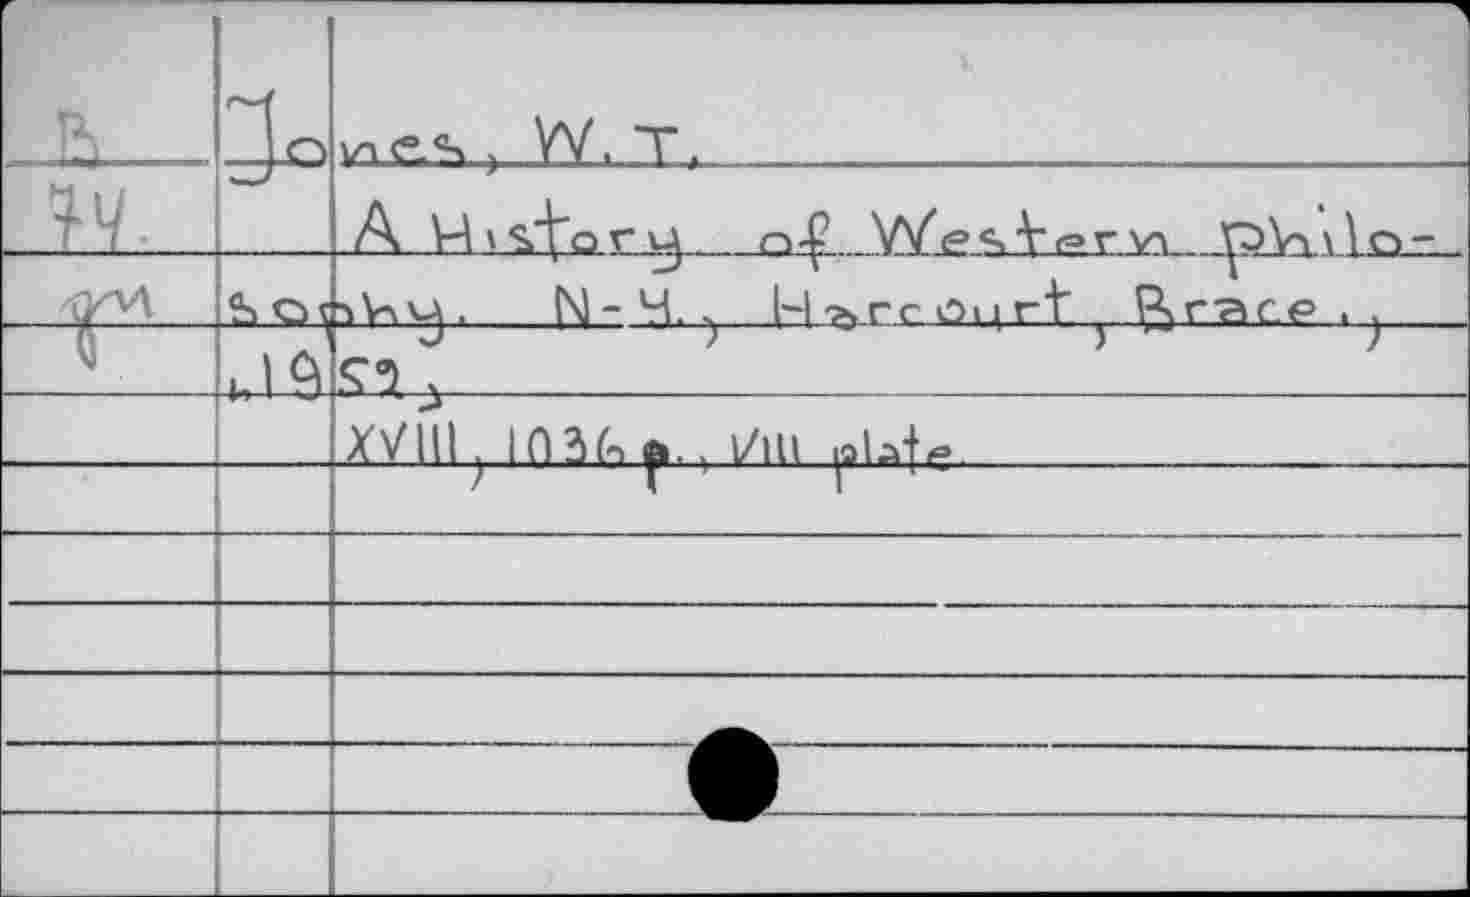 B Jones, W. T.
74. A History of Western philo-
sophy. N-Y., Harcourt, Brace.,
c1952,
XVIII, 1036 p., VIII plate.